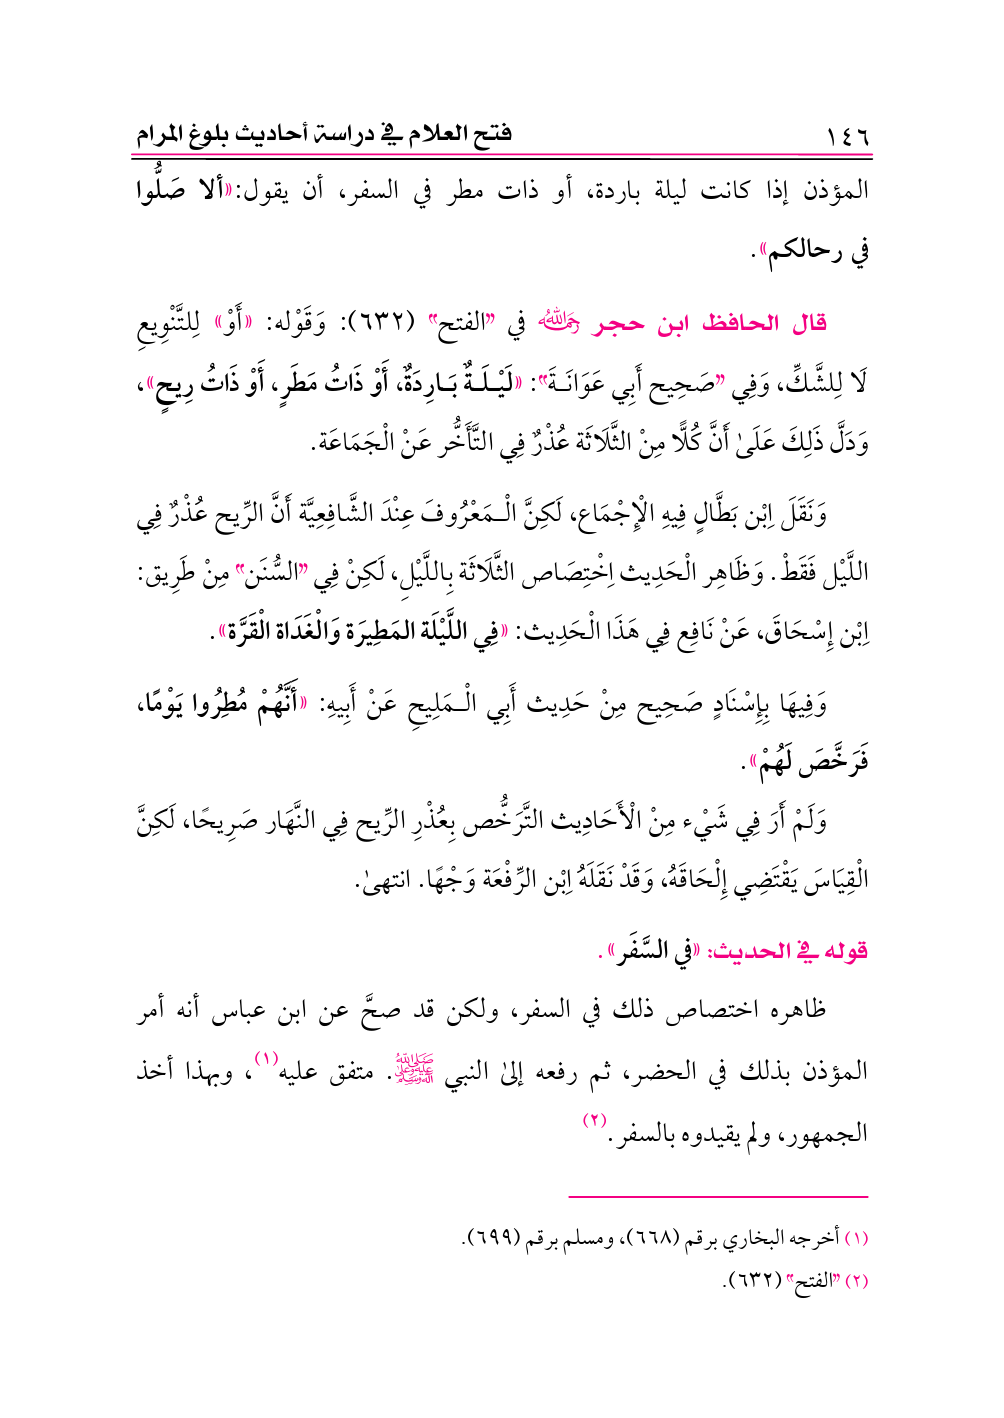 ١٤٦ فتح العلام في دراسة أحاديث بلوغ المرام
المؤذن إذا كانت ليلة باردة، أو ذات مطر في السفر، أن يقول: «ألا صَلُّوا
في رحالكم».
قال الحافظ ابن حجر رحمه الله في "الفتح" (٦٣٢): وَقَوْله: «أَوْ» لِلتَّنْوِيعِ
لَا لِلشَّكِّ، وَفِي "صَحِيح أَبِي عَوَانَـةَ": «لَيْـلَـةٌ بَـارِدَةٌ، أَوْ ذَاتُ مَطَرٍ، أَوْ ذَاتُ رِيحٍ»،
وَدَلَّ ذَلِكَ عَلَىٰ أَنَّ كُلًّا مِنْ الثَّلَاثَة عُذْرٌ فِي التَّأَخُّر عَنْ الْجَمَاعَة.
وَنَقَلَ اِبْن بَطَّالٍ فِيهِ الْإِجْمَاع، لَكِنَّ الْـمَعْرُوفَ عِنْدَ الشَّافِعِيَّة أَنَّ الرِّيح عُذْرٌ فِي
اللَّيْل فَقَطْ. وَظَاهِر الْحَدِيث اِخْتِصَاص الثَّلَاثَة بِاللَّيْلِ، لَكِنْ فِي "السُّنَن" مِنْ طَرِيق:
اِبْن إِسْحَاقَ، عَنْ نَافِع فِي هَذَا الْحَدِيث: «فِي اللَّيْلَة المَطِيرَة وَالْغَدَاة الْقَرَّة».
وَفِيهَا بِإِسْنَادٍ صَحِيح مِنْ حَدِيث أَبِي الْـمَلِيحِ عَنْ أَبِيهِ: «أَنَّهُمْ مُطِرُوا يَوْمًا،
فَرَخَّصَ لَهُمْ».
وَلَمْ أَرَ فِي شَيْء مِنْ الْأَحَادِيث التَّرَخُّص بِعُذْرِ الرِّيح فِي النَّهَار صَرِيحًا، لَكِنَّ
الْقِيَاسَ يَقْتَضِي إِلْحَاقَهُ، وَقَدْ نَقَلَهُ اِبْن الرِّفْعَة وَجْهًا. انتهىٰ.
قوله في الحديث: «في السَّفَر».
ظاهره اختصاص ذلك في السفر، ولكن قد صحَّ عن ابن عباس أنه أمر
المؤذن بذلك في الحضر، ثم رفعه إلىٰ النبي ﷺ. متفق عليه(١)، وبهذا أخذ
الجمهور، ولم يقيدوه بالسفر.(٢)
(١) أخرجه البخاري برقم (٦٦٨)، ومسلم برقم (٦٩٩).
(٢) "الفتح" (٦٣٢).